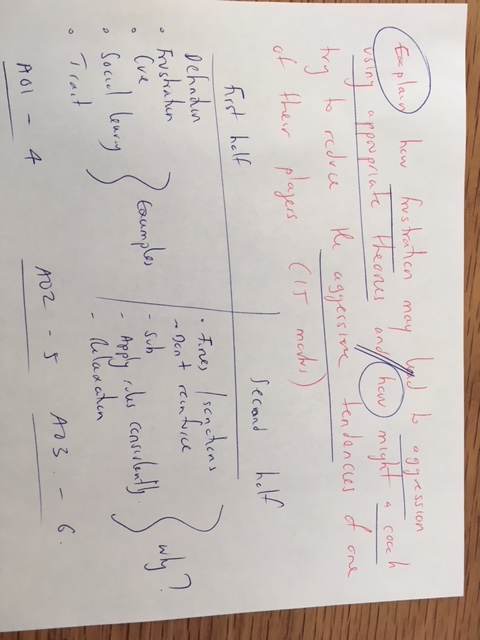 Explain how frustration may lead to aggression
using appropriate theories and how might a coach
try to reduce the aggressive tendencies of one
of their players (15 marks)
First half
Second half
Definition
• Frustration
• Cue
• Social learning
• Trait
Examples
• Fines / sanctions
- Don't reinforce
- Sub
- Apply rules consistently.
- Relaxation
Why?
AO1 - 4
AO2 - 5
AO3. - 6.